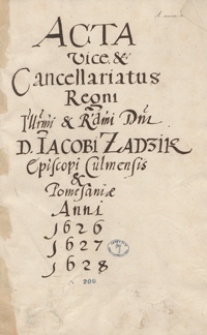 ACTA
Vice &
Cancellariatus
Regni
Illrmi & Rdmi Dni
D. IACOBI ZADZIK
Episcopi Culmensis
&
Pomesaniæ
Anni
1626
1627
1628